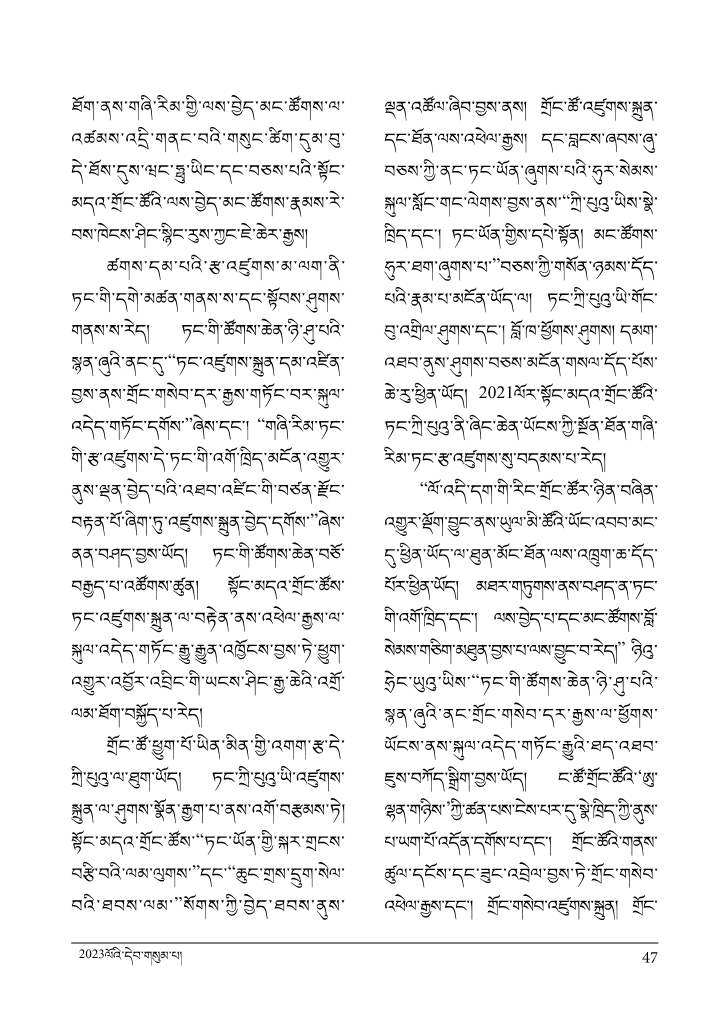 ཐོག་ནས་གཞི་རིམ་གྱི་ལས་བྱེད་མང་ཚོགས་ལ་
འཚམས་འདྲི་གནང་བའི་གསུང་ཚིག་དུམ་བུ་
དེ་ཐོས་དུས་ཝང་ཧྥུ་ཡིང་དང་བཅས་པའི་སྟོང་
མདའ་གྲོང་ཚོའི་ལས་བྱེད་མང་ཚོགས་རྣམས་རེ་
བས་ཁེངས་ཤིང་སྙིང་རུས་ཀྱང་ཇེ་ཆེར་རྒྱས།
ཚགས་དམ་པའི་རྩ་འཛུགས་མ་ལག་ནི་
ཏང་གི་དགེ་མཚན་གནས་ས་དང་སྟོབས་ཤུགས་
གནས་ས་རེད། ཏང་གི་ཚོགས་ཆེན་ཉི་ཤུ་པའི་
སྙན་ཞུའི་ནང་དུ་“ཏང་འཛུགས་སྐྲུན་དམ་འཛིན་
བྱས་ནས་གྲོང་གསེབ་དར་རྒྱས་གཏོང་བར་སྐུལ་
འདེད་གཏོང་དགོས་”ཞེས་དང་། “གཞི་རིམ་ཏང་
གི་རྩ་འཛུགས་དེ་ཏང་གི་འགོ་ཁྲིད་མངོན་འགྱུར་
ནུས་ལྡན་བྱེད་པའི་འཐབ་འཛིང་གི་བཙན་རྫོང་
བརྟན་པོ་ཞིག་ཏུ་འཛུགས་སྐྲུན་བྱེད་དགོས་”ཞེས་
ནན་བཤད་བྱས་ཡོད། ཏང་གི་ཚོགས་ཆེན་བཅོ་
བརྒྱད་པ་འཚོགས་ཚུན། སྟོང་མདའ་གྲོང་ཚོས་
ཏང་འཛུགས་སྐྲུན་ལ་བརྟེན་ནས་འཕེལ་རྒྱས་ལ་
སྐུལ་འདེད་གཏོང་རྒྱུ་རྒྱུན་འཁྱོངས་བྱས་ཏེ་ཕྱུག་
འགྱུར་འབྱོར་འབྲིང་གི་ཡངས་ཤིང་རྒྱ་ཆེའི་འགྲོ་
ལམ་ཐོག་བསྐྱོད་པ་རེད།
གྲོང་ཚོ་ཕྱུག་པོ་ཡིན་མིན་གྱི་འགག་རྩ་དེ་
ཀྲི་པུའུ་ལ་ཐུག་ཡོད། ཏང་ཀྲི་པུའུ་ཡི་འཛུགས་
སྐྲུན་ལ་ཤུགས་སྣོན་རྒྱག་པ་ནས་འགོ་བརྩམས་ཏེ།
སྟོང་མདའ་གྲོང་ཚོས་“ཏང་ཡོན་གྱི་སྐར་གྲངས་
བརྩི་བའི་ལམ་ལུགས་”དང་“ཆུང་གྲས་དྲུག་སེལ་
བའི་ཐབས་ལམ་”སོགས་ཀྱི་བྱེད་ཐབས་ནུས་
ལྡན་འཚོལ་ཞིབ་བྱས་ནས། གྲོང་ཚོ་འཛུགས་སྐྲུན་
དང་ཐོན་ལས་འཕེལ་རྒྱས། དང་བླངས་ཞབས་ཞུ་
བཅས་ཀྱི་ནང་ཏང་ཡོན་ཞུགས་པའི་ཧུར་སེམས་
སྐུལ་སློང་གང་ལེགས་བྱས་ནས་“ཀྲི་པུའུ་ཡིས་སྣེ་
ཁྲིད་དང་། ཏང་ཡོན་གྱིས་དཔེ་སྟོན། མང་ཚོགས་
ཧུར་ཐག་ཞུགས་པ་”བཅས་ཀྱི་གསོན་ཉམས་དོད་
པའི་རྣམ་པ་མངོན་ཡོད་ལ། ཏང་ཀྲི་པུའུ་ཡི་གོང་
བུ་འགྲིལ་ཤུགས་དང་། བློ་ཁ་ཕྱོགས་ཤུགས། དམག་
འཐབ་ནུས་ཤུགས་བཅས་མངོན་གསལ་དོད་པོས་
ཆེ་རུ་ཕྱིན་ཡོད། 2021ལོར་སྟོང་མདའ་གྲོང་ཚོའི་
ཏང་ཀྲི་པུའུ་ནི་ཞིང་ཆེན་ཡོངས་ཀྱི་སྔོན་ཐོན་གཞི་
རིམ་ཏང་རྩ་འཛུགས་སུ་བདམས་པ་རེད།
“ལོ་འདི་དག་གི་རིང་གྲོང་ཚོར་ཉིན་བཞིན་
འགྱུར་ལྡོག་བྱུང་ནས་ཡུལ་མི་ཚོའི་ཡོང་འབབ་མང་
དུ་ཕྱིན་ཡོད་ལ་ཐུན་མོང་ཐོན་ལས་འཁྲུག་ཆ་དོད་
པོར་ཕྱིན་ཡོད། མཐར་གཏུགས་ནས་བཤད་ན་ཏང་
གི་འགོ་ཁྲིད་དང་། ལས་བྱེད་པ་དང་མང་ཚོགས་བློ་
སེམས་གཅིག་མཐུན་བྱས་པ་ལས་བྱུང་བ་རེད།” ཉིའུ་
ཧྲེང་ཡུའུ་ཡིས་“ཏང་གི་ཚོགས་ཆེན་ཉི་ཤུ་པའི་
སྙན་ཞུའི་ནང་གྲོང་གསེབ་དར་རྒྱས་ལ་ཕྱོགས་
ཡོངས་ནས་སྐུལ་འདེད་གཏོང་རྒྱུའི་ཐད་འཐབ་
ཇུས་བཀོད་སྒྲིག་བྱས་ཡོད། ང་ཚོ་གྲོང་ཚོའི་‘ཨུ་
ལྷན་གཉིས་’ཀྱི་ཚན་པས་ངེས་པར་དུ་སྣེ་ཁྲིད་ཀྱི་ནུས་
པ་ཡག་པོ་འདོན་དགོས་པ་དང་། གྲོང་ཚོའི་གནས་
ཚུལ་དངོས་དང་ཟུང་འབྲེལ་བྱས་ཏེ་གྲོང་གསེབ་
འཕེལ་རྒྱས་དང་། གྲོང་གསེབ་འཛུགས་སྐྲུན། གྲོང་
2023ལོའི་དེབ་གསུམ་པ།
47